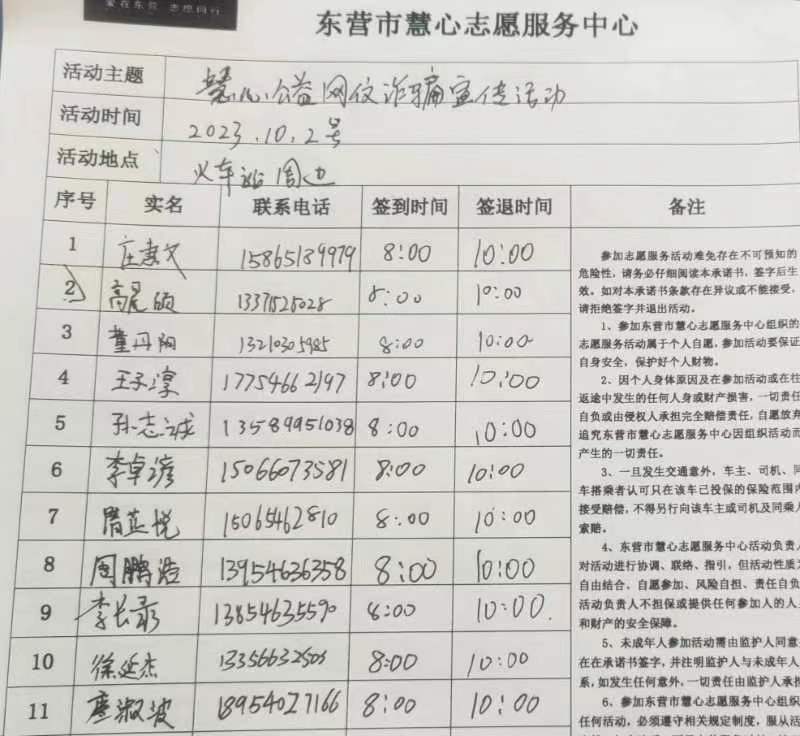 爱在东营 志愿同行
东营市慧心志愿服务中心
活动主题 慧心公益网仪诈骗宣传活动
活动时间 2023.10.2号
活动地点 火车站周边
序号 实名 联系电话 签到时间 签退时间 备注
1 15865189979 8:00 10:00
2 高 13371528028 8:00 10:00
3 董丹阳 13210305985 8:00 10:00
4 王子淳 17754662197 8:00 10:00
5 孙志诚 13589951038 8:00 10:00
6 李卓彦 15066073581 8:00 10:00
7 15065462810 8:00 10:00
8 周鹏浩 13954636358 8:00 10:00
9 李长 13854635590 8:00 10:00.
10 徐延杰 13356632503 8:00 10:00
11 淑波 18954027166 8:00 10:00
参加志愿服务活动难免存在不可预知的
危险性，请务必仔细阅读本承诺书，签字后生
效。如对本承诺书条款存在异议或不能接受，
请拒绝签字并退出活动。
1、参加东营市慧心志愿服务中心组织的
志愿服务活动属于个人自愿，参加活动要保证
自身安全，保护好个人财物。
2、因个人身体原因及在参加活动或在往
返途中发生的任何人身或财产损害，一切责任
自负或由侵权人承担完全赔偿责任，自愿放弃
追究东营市慧心志愿服务中心因组织活动而
产生的一切责任。
3、一旦发生交通意外，车主、司机、同
车搭乘者认可只在该车已投保的保险范围内
接受赔偿，不得另行向该车主或司机及同乘人
索赔。
4、东营市慧心志愿服务中心活动负责人
对活动进行协调、联络、指引，但活动性质为
自由结合、自愿参加、风险自担、责任自负
活动负责人不担保或提供任何参加人的人身
和财产的安全保障。
5、未成年人参加活动需由监护人同意并
在在承诺书签字，并注明监护人与未成年人
系，如发生任何意外，一切责任由监护人承担
6、参加东营市慧心志愿服务中心组织
任何活动，必须遵守相关规定制度，服从活